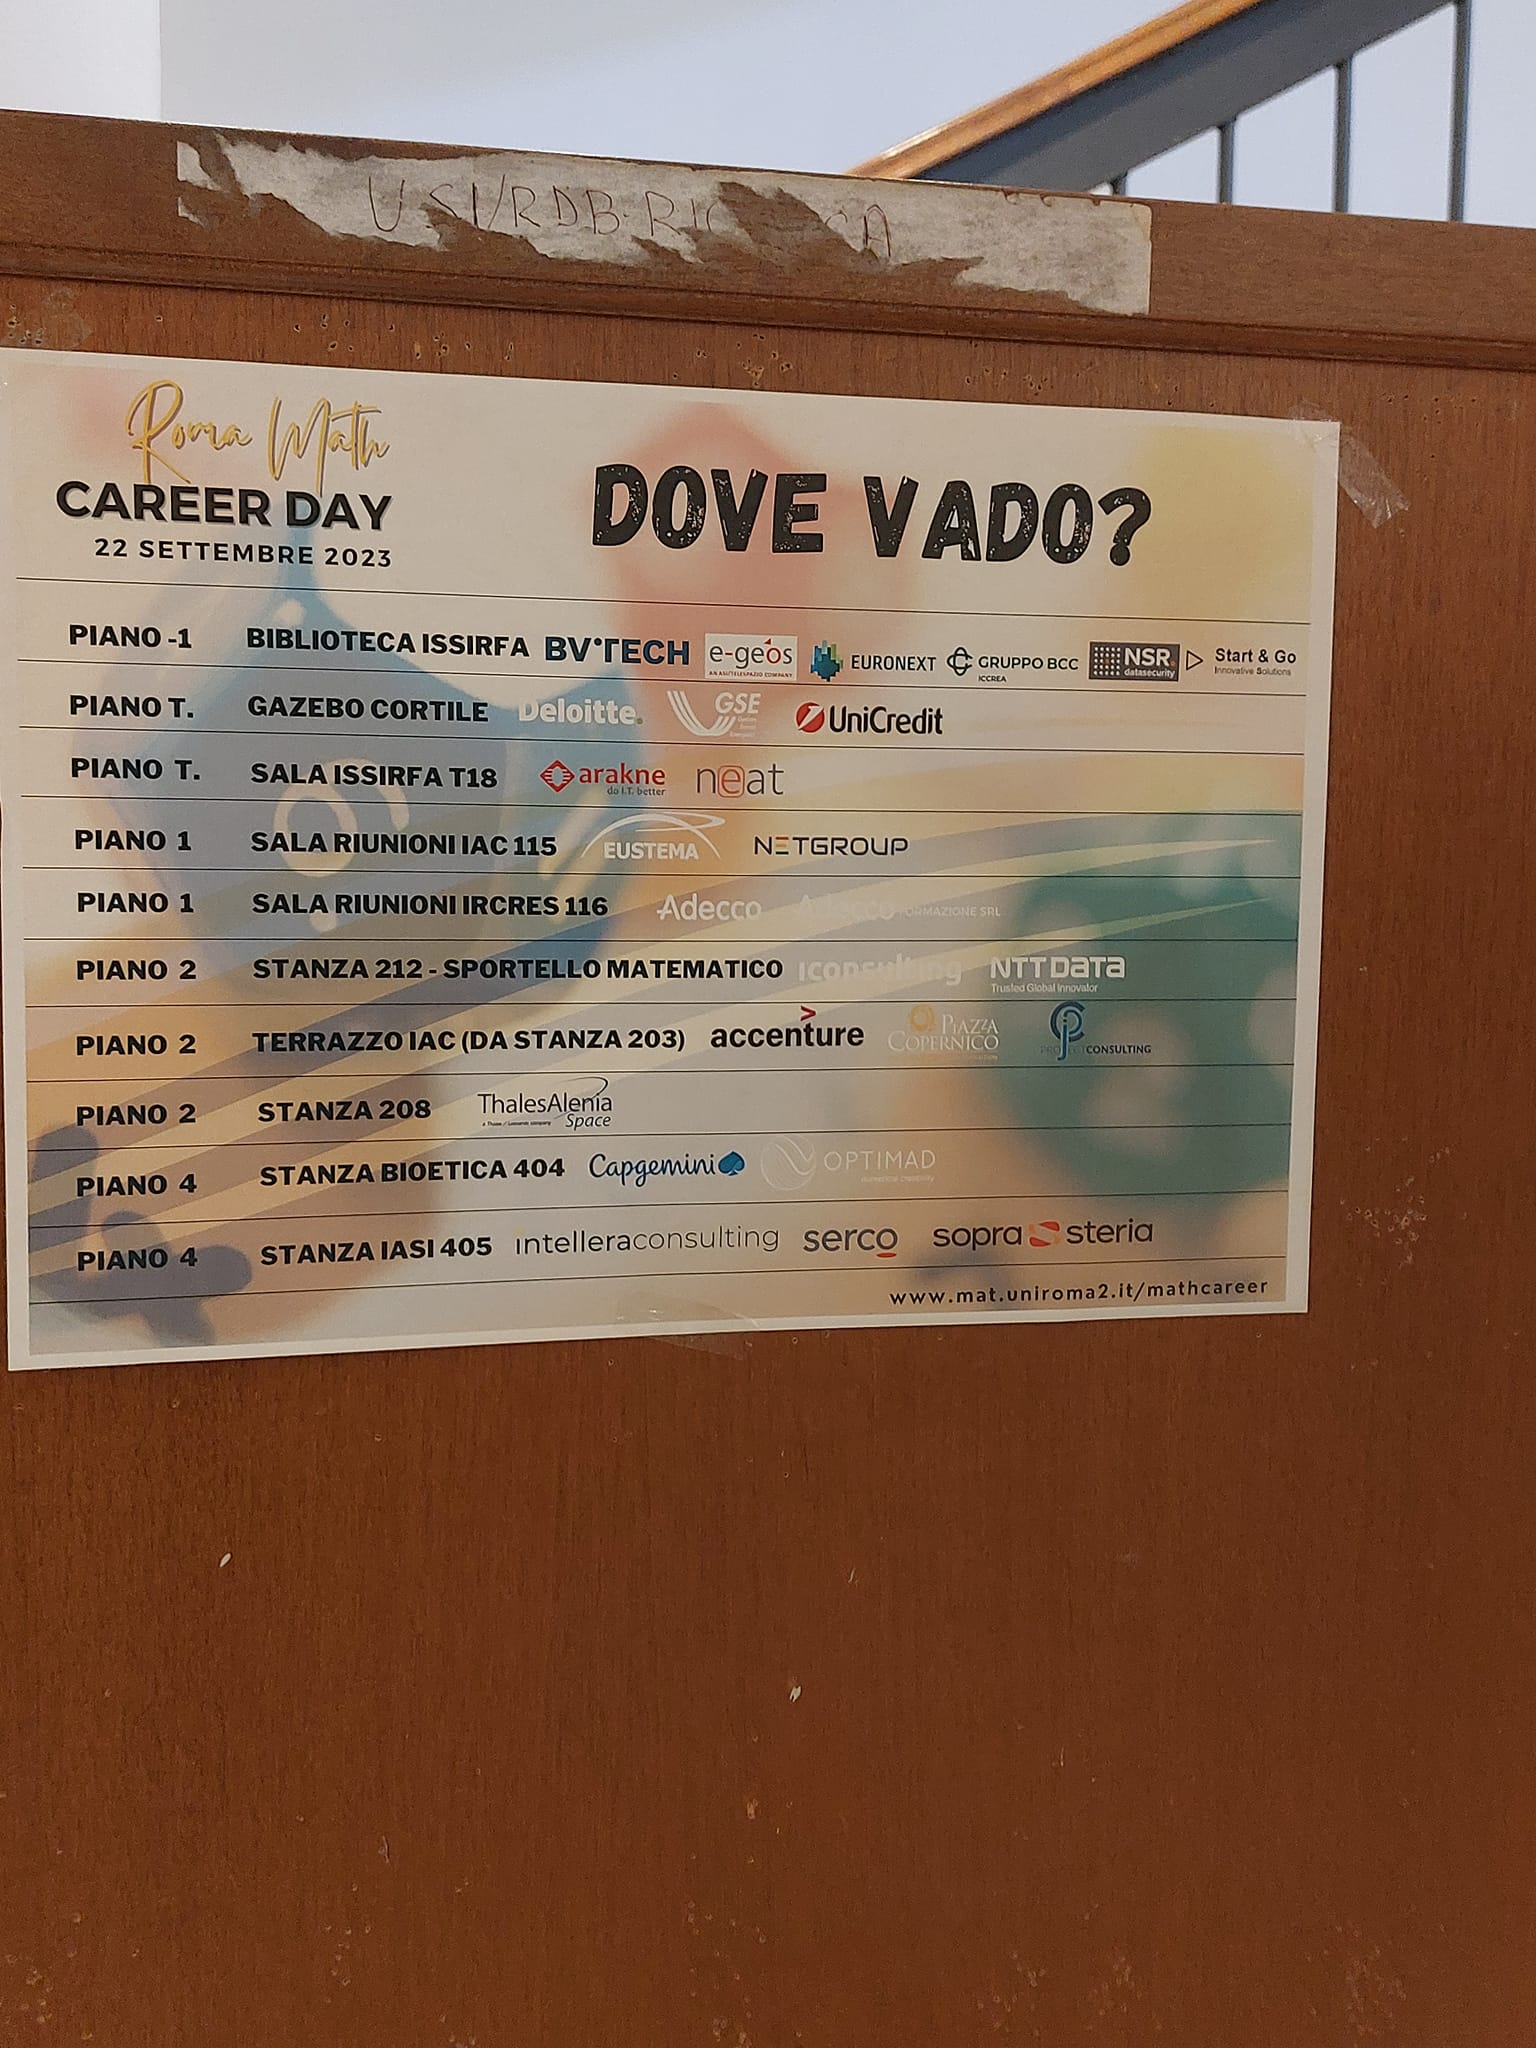 USI/RDB-RIC CA
Roma Math
CAREER DAY
22 SETTEMBRE 2023
DOVE VADO?
PIANO -1 BIBLIOTECA ISSIRFA BV TECH e-geos AN ASI/TELESPAZIO COMPANY EURONEXT GRUPPO BCC ICCREA NSR datasecurity Start & Go Innovative Solutions
PIANO T. GAZEBO CORTILE Deloitte. GSE UniCredit
PIANO T. SALA ISSIRFA T18 arakne do I.T. better neat
PIANO 1 SALA RIUNIONI IAC 115 EUSTEMA NETGROUP
PIANO 1 SALA RIUNIONI IRCRES 116 Adecco Adecco FORMAZIONE SRL
PIANO 2 STANZA 212 - SPORTELLO MATEMATICO iconsulting NTT DATA Trusted Global Innovator
PIANO 2 TERRAZZO IAC (DA STANZA 203) accenture PIAZZA COPERNICO PROJECT CONSULTING
PIANO 2 STANZA 208 ThalesAlenia Space
PIANO 4 STANZA BIOETICA 404 Capgemini OPTIMAD
PIANO 4 STANZA IASI 405 intelleraconsulting serco sopra steria
www.mat.uniroma2.it/mathcareer